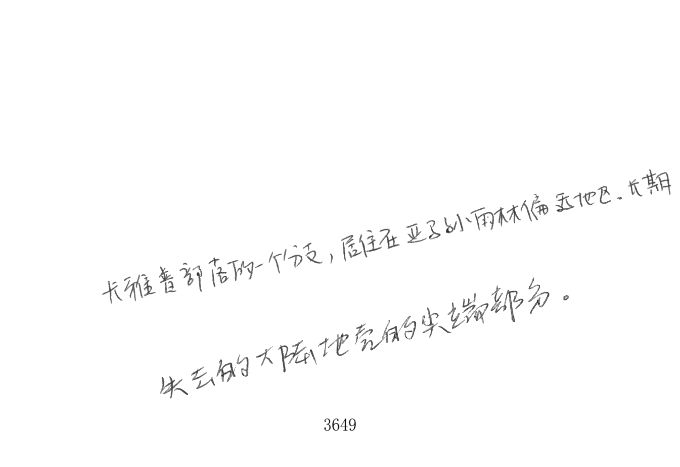 卡雅普部落的一个分支，居住在亚马孙雨林偏远地区.长期
失去的大陆地壳的尖端部分。
3649